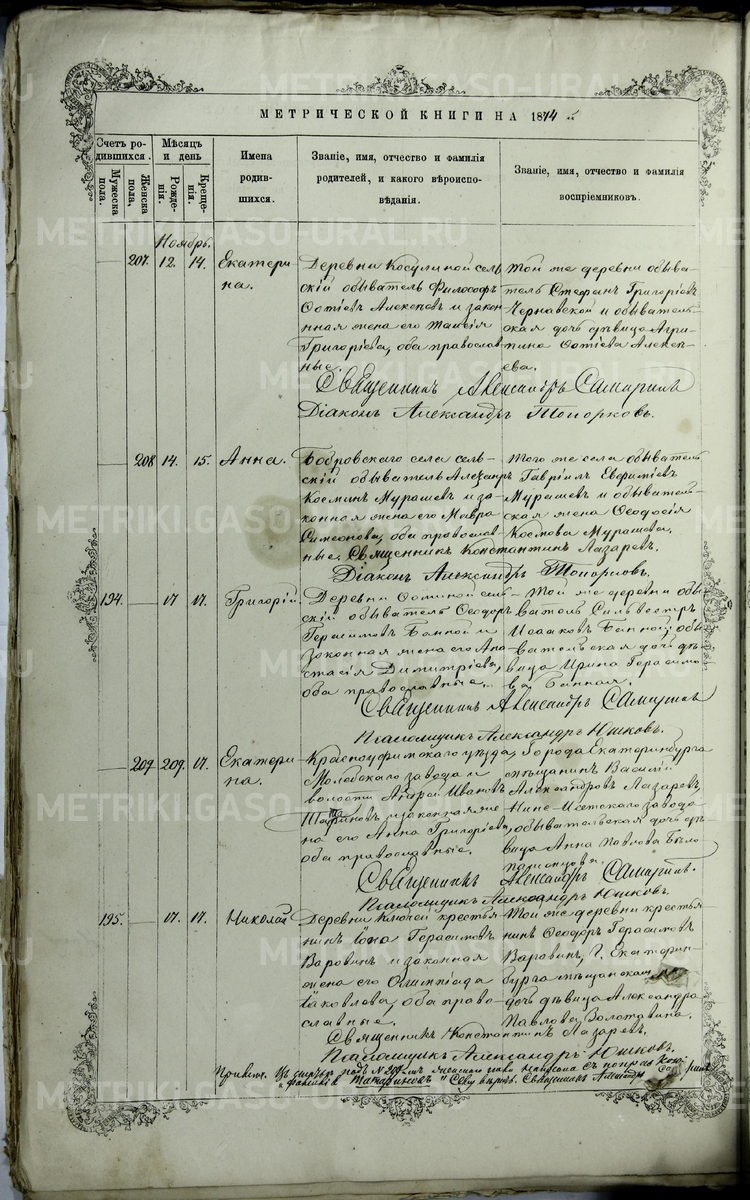 МЕТРИЧЕСКОЙ КНИГИ НА 1874
Счетъ родившихся.
Мѣсяцъ и день
Имена родившихся.
Званіе, имя, отчество и фамилія родителей, и какого вѣроисповѣданія.
Званіе, имя, отчество и фамилія воспріемниковъ.
Мужеска пола.
Женска пола.
Рожденія.
Крещенія.
Ноябрь.
207. 12. 14. Екатерина.
Деревни Косулиной сельскій обыватель Философъ Фотіевъ Алексѣевъ и законная жена его Таисія Григоріева, оба православные.
Той же деревни обыватель Стефанъ Григоріевъ Чернавской и обывательская дочь дѣвица Агрипина Фотіева Алексѣева.
Священникъ Александръ Самаринъ
Діаконъ Александръ Топорковъ.
208 14. 15. Анна.
Бобровскаго села сельскій обыватель
Космин Мурашев и законная жена его Мавра Симеонова, оба православные.
Того же села обыватель Гавріилъ Евфиміевъ Мурашевъ и обывательская жена Феодосія Космова Мурашева.
Священникъ Константинъ Лазаревъ.
Діаконъ Александръ Топорковъ.
194. 17 17. Григорій.
Деревни сельскій обыватель Феодоръ Герасимовъ Банной и законная жена его Анастасія Димитріева, оба православные.
Той же деревни обыватель Сильвестръ Исааковъ Банной обывательская дочь дѣвица Ирина Герасимова Банная.
Священникъ Александръ Самаринъ
Псаломщикъ Александръ Юшковъ.
209 17. Екатерина.
Красноуфимскаго уѣзда, Молебскаго завода и волости Андрей Ивановъ и законная жена его Анна Григоріева, оба православные.
Города Екатеринбурга мѣщанинъ Василій Александровъ Лазаревъ, Нине-Исетскаго завода обывательская дочь дѣвица Анна Павлова
Священникъ Александръ Самаринъ.
Псаломщикъ Александръ Юшковъ.
195. 17. 17. Николай
Деревни Ключей крестьянинъ Іона Герасимовъ Варовинъ и законная жена его Олимпіада Іаковлова, оба православные.
Той же деревни крестьянинъ Феодоръ Герасимовъ Варовинъ, Г. Екатеринбурга мѣщанская дочь дѣвица Александра Павлова Золотавина.
Священникъ Константинъ Лазаревъ.
Псаломщикъ Александръ Юшковъ.
METRIKI.GASO-URAL.RU